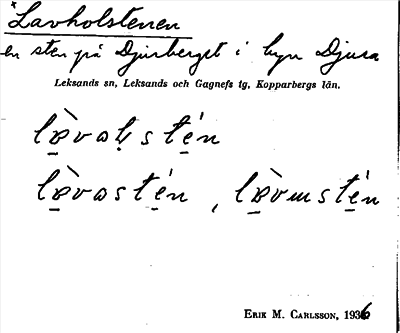 *Lavholstenen
en sten på Djurberget i byn Djura
Leksands sn, Leksands och Gagnefs tg, Kopparbergs län.
lævaḷstén
lævastén, lævmstén
ERIK M. CARLSSON, 1936